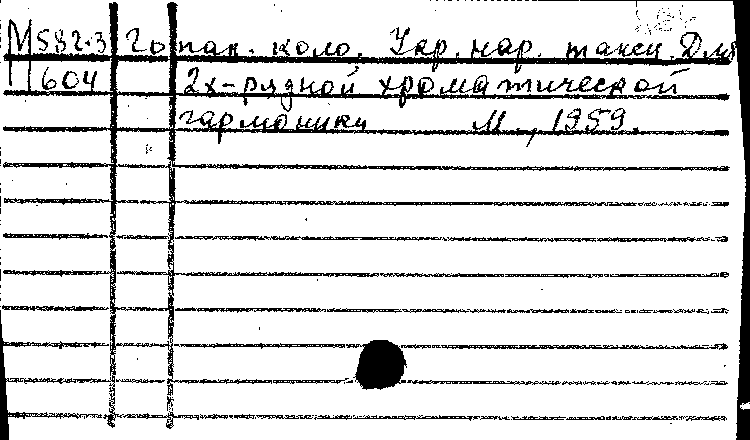 М582.3 Гопак. коло. Укр. нар. танец. Для
П604 2х-рядной хроматической
гармоники М., 1959.